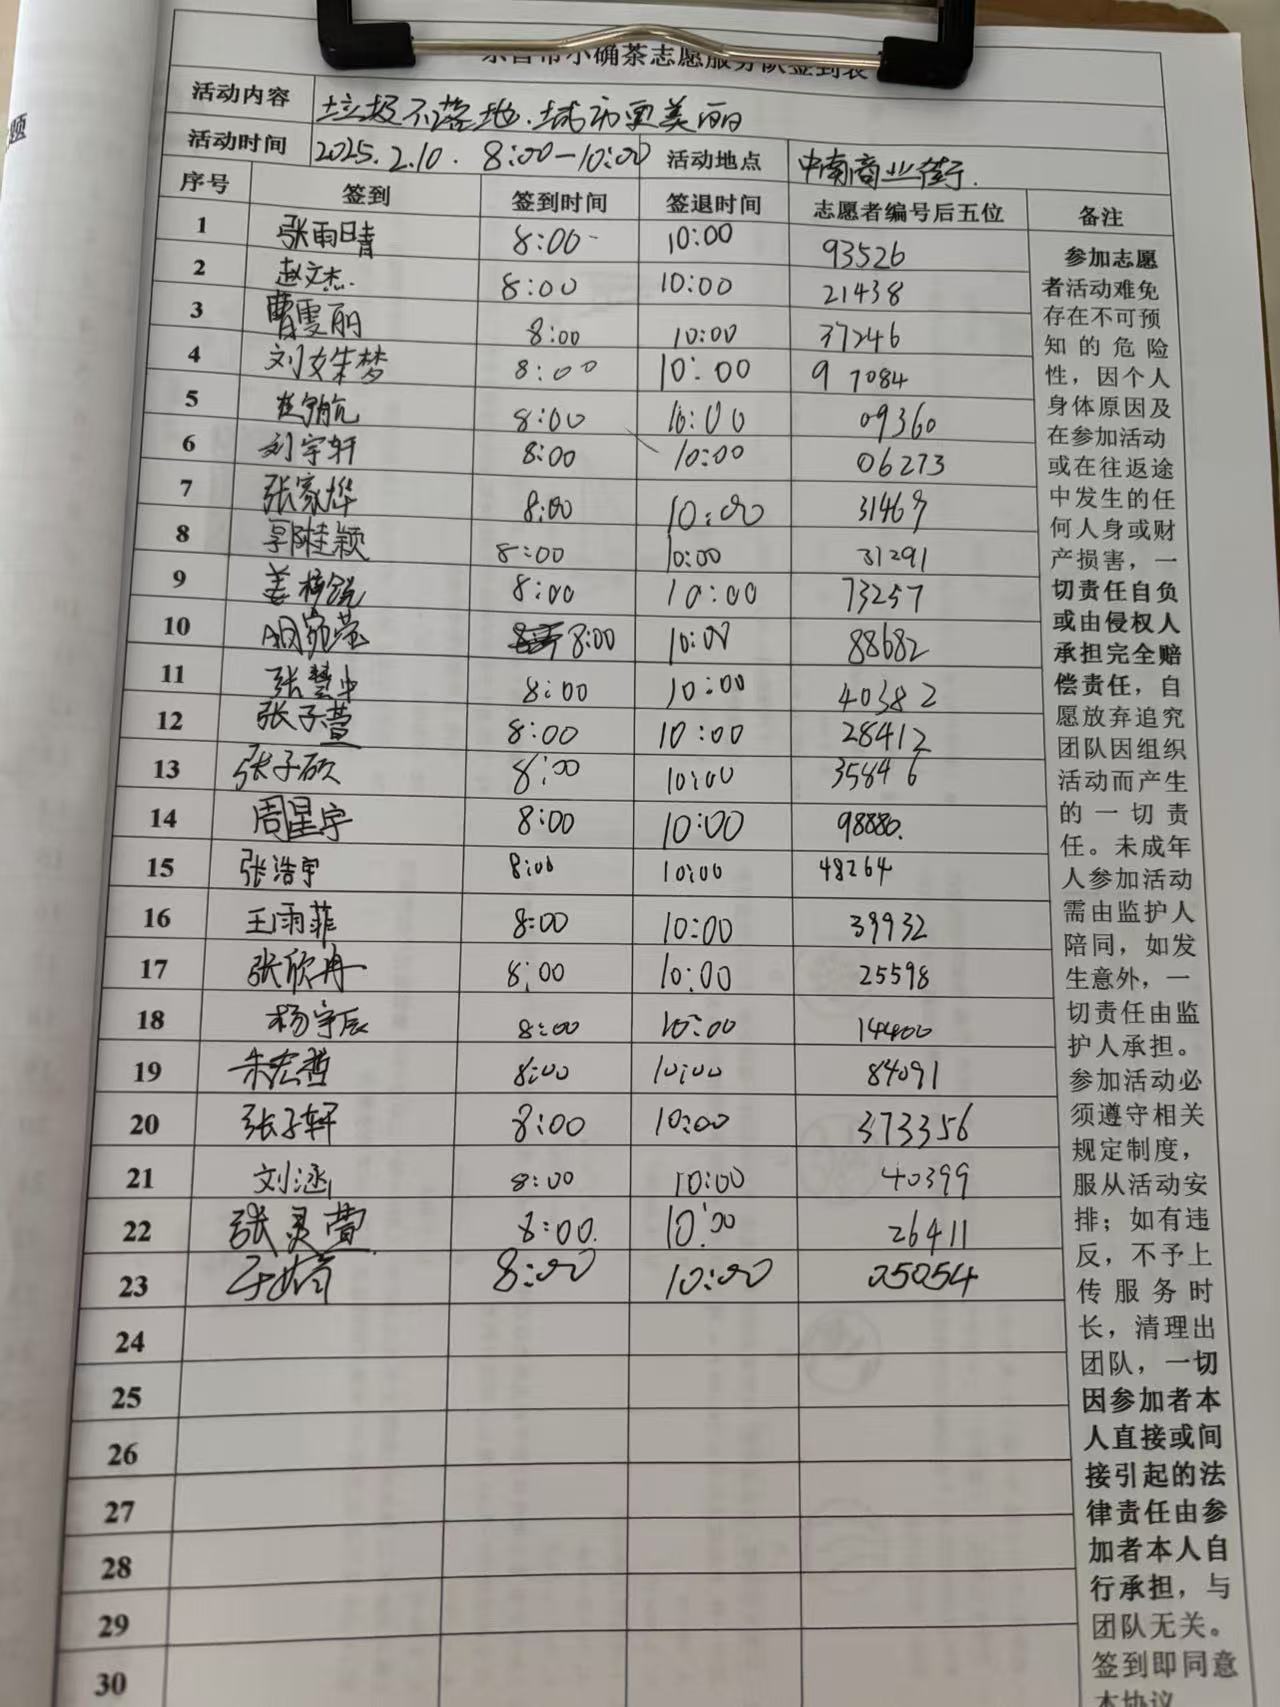 小确茶志愿服务队签到表
活动内容 垃圾不落地.城市更美丽
活动时间 2025.2.10. 8:00-10:00 活动地点 中南商业街.
序号 签到 签到时间 签退时间 志愿者编号后五位 备注
1 张雨晴 8:00 10:00 93526
2 赵文杰. 8:00 10:00 21438
3 曹雯丽 8:00 10:00 37246
4 刘姝梦 8:00 10:00 97084
5 8:00 10:00 09360
6 刘宇轩 8:00 10:00 06273
7 张家烨 8:00 10:00 31467
8 郭佳颖 8:00 10:00 31291
9 姜梓锐 8:00 10:00 73257
10 8:00 10:00 88682
11 张慧中 8:00 10:00 40382
12 张子萱 8:00 10:00 28412
13 张子硕 8:00 10:00 35846
14 周星宇 8:00 10:00 98880.
15 张浩宇 8:00 10:00 48264
16 王雨菲 8:00 10:00 39932
17 张欣冉 8:00 10:00 25598
18 杨宇辰 8:00 10:00 14400
19 朱宏哲 8:00 10:00 84091
20 张子轩 8:00 10:00 373356
21 刘涵 8:00 10:00 40399
22 张灵萱 8:00. 10:00 26411
23 于婧 8:00 10:00 05054
24
25
26
27
28
29
30
参加志愿
者活动难免
存在不可预
知的危险
性，因个人
身体原因及
在参加活动
或在往返途
中发生的任
何人身或财
产损害，一
切责任自负
或由侵权人
承担完全赔
偿责任，自
愿放弃追究
团队因组织
活动而产生
的一切责
任。未成年
人参加活动
需由监护人
陪同，如发
生意外，一
切责任由监
护人承担。
参加活动必
须遵守相关
规定制度，
服从活动安
排；如有违
反，不予上
传服务时
长，清理出
团队，一切
因参加者本
人直接或间
接引起的法
律责任由参
加者本人自
行承担，与
团队无关。
签到即同意
本协议
题